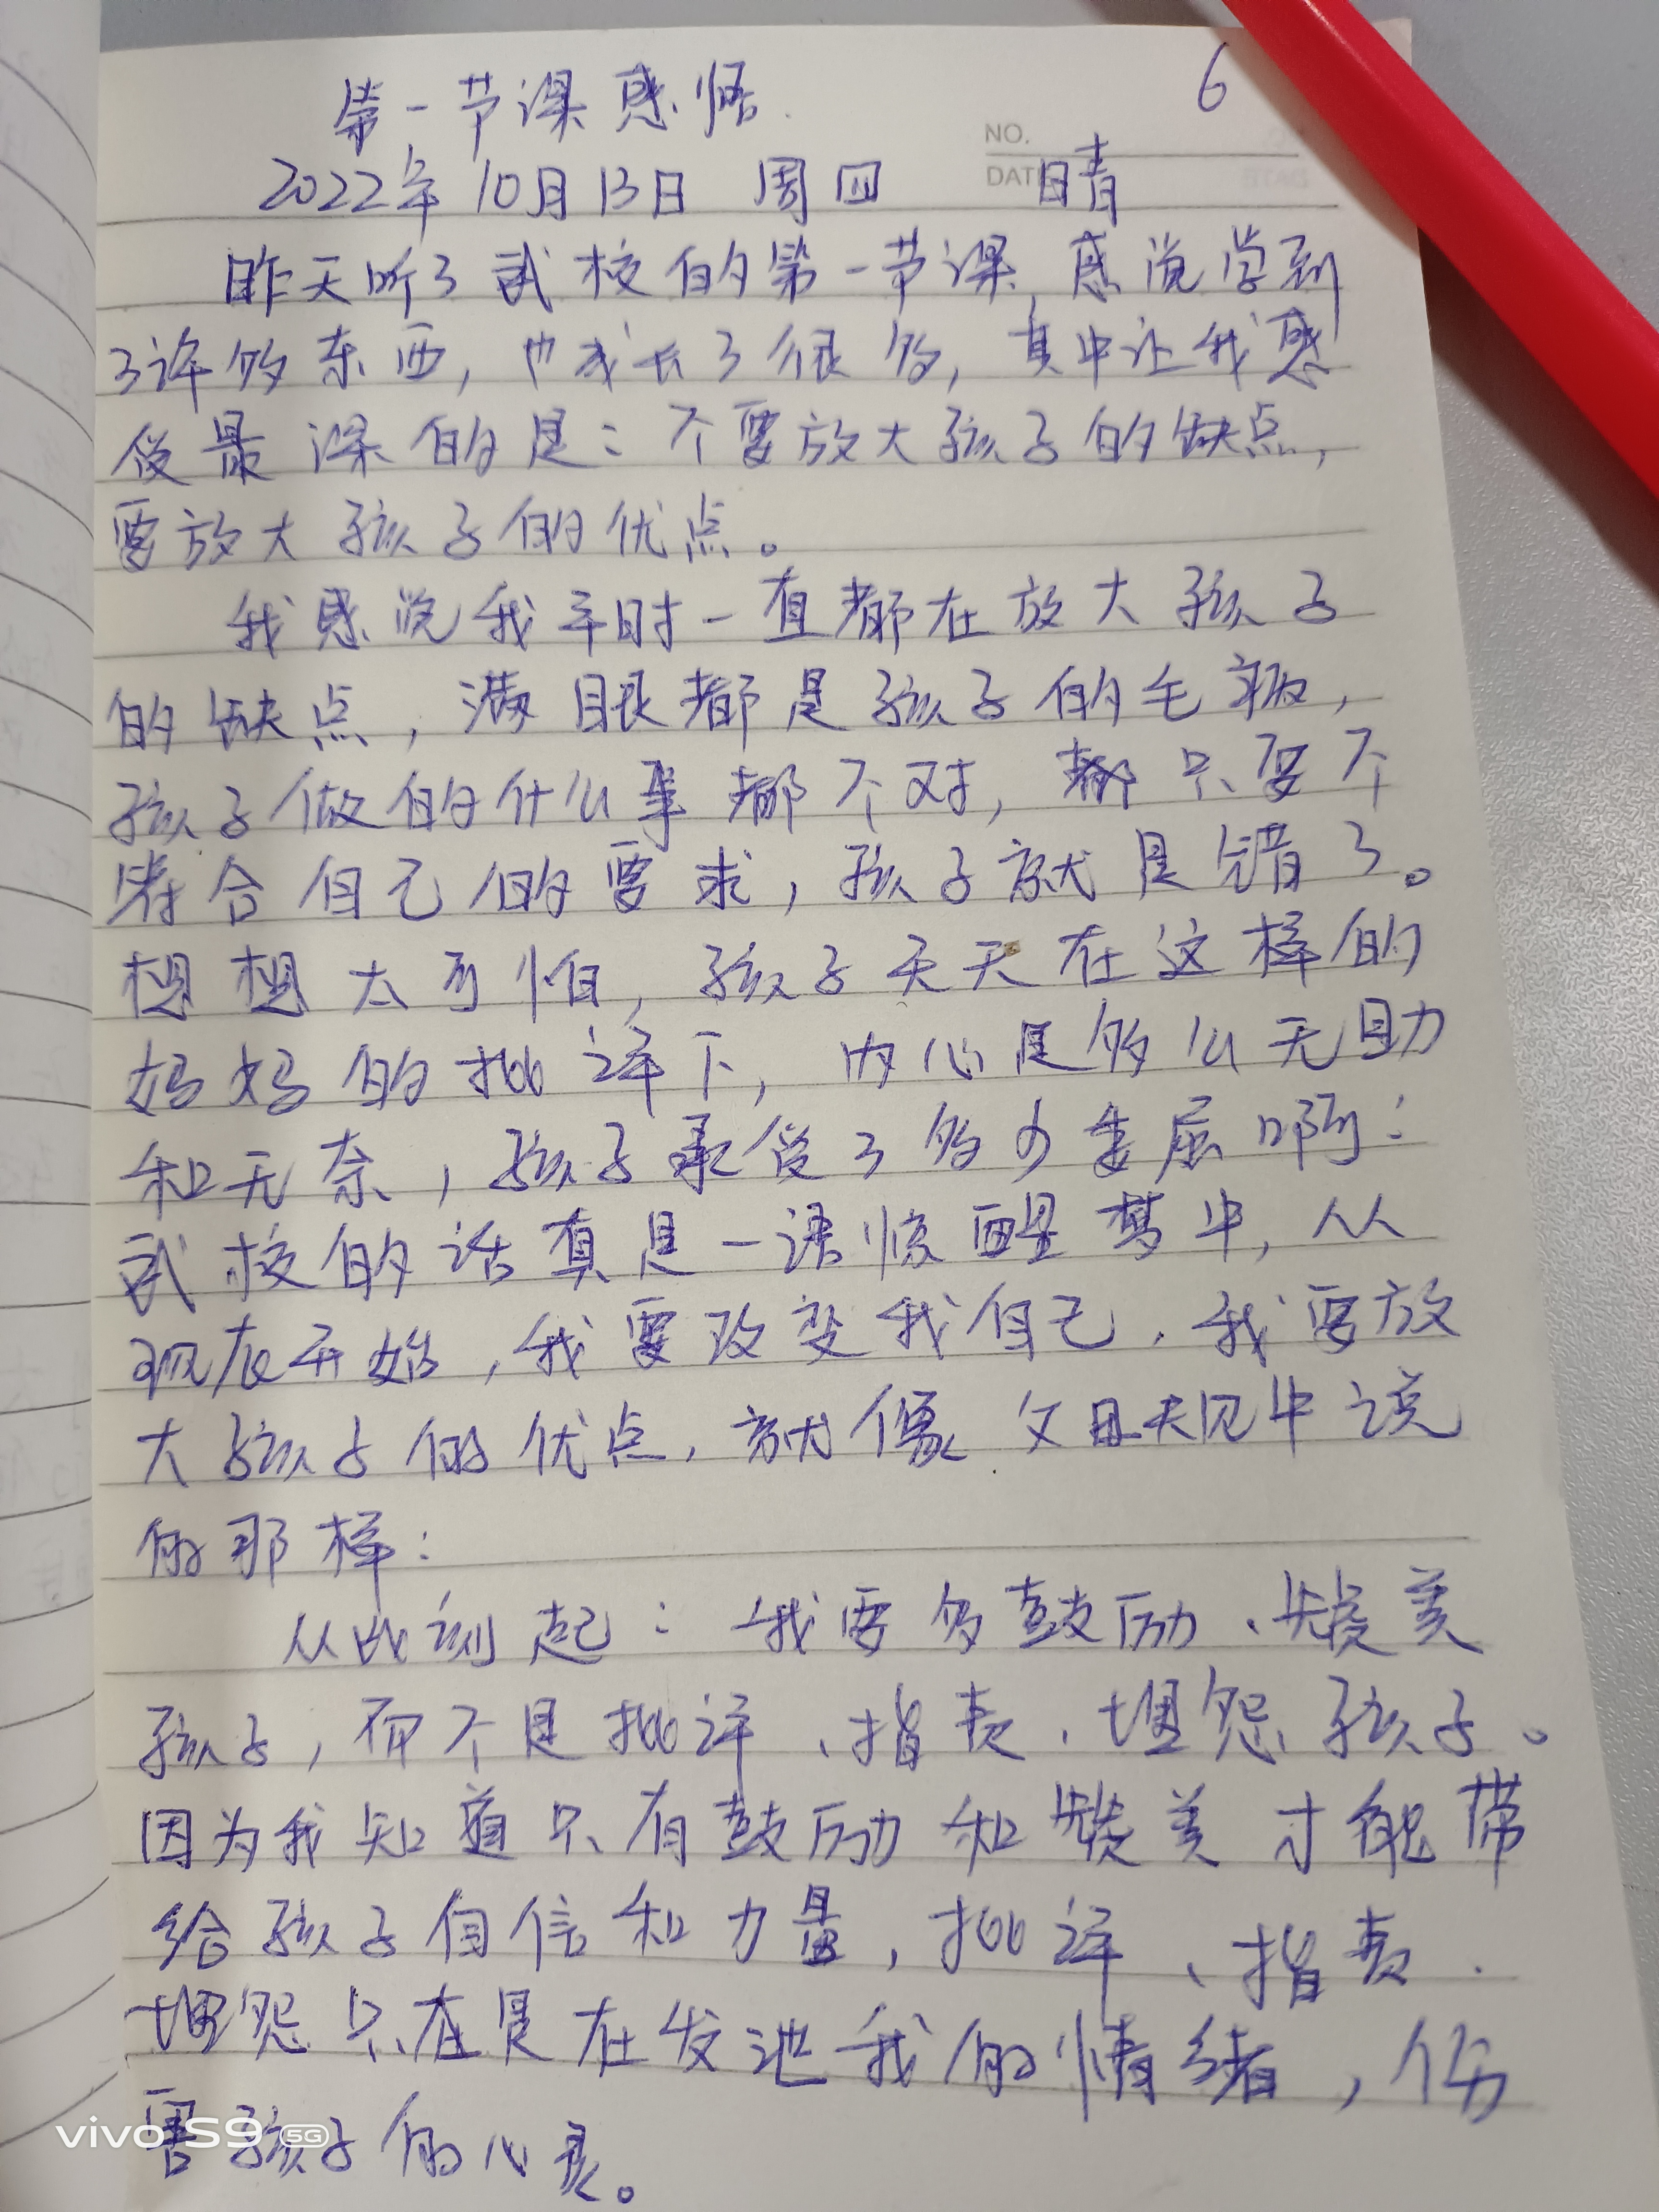 第一节课感悟
6
NO.
DATE
2022年10月13日 周四 晴
昨天听了武校的第一节课,感觉学到
了许多东西,也成长了很多,其中让我感
受最深的是:不要放大孩子的缺点,
要放大孩子的优点。
我感觉我平时一直都在放大孩子
的缺点,满眼都是孩子的毛病,
孩子做的什么事都不对,都只要不
符合自己的要求,孩子就是错了。
想想太可怕,孩子天天在这样的
妈妈的批评下,内心是多么无助
和无奈,孩子承受了多少委屈啊!
武校的话真是一语惊醒梦中,从
现在开始,我要改变我自己,我要放
大孩子的优点,就像父母规中说
的那样:
从此刻起:我要多鼓励、赞美
孩子,而不是批评、指责、埋怨孩子。
因为我知道只有鼓励和赞美才能带
给孩子自信和力量,批评、指责、
埋怨只在是在发泄我的情绪,伤
害孩子的心灵。
vivo S9 5G